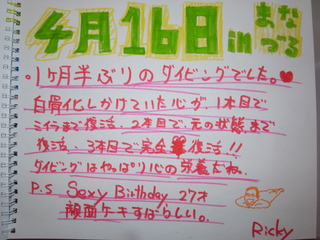 4月16日 in まなづる
1ヶ月半ぶりのダイビングでした。
白骨化しかけていた心が、1本目で
ミイラまで復活、2本目で、元の状態まで
復活、3本目で完全復活!!
ダイビングはやっぱり心の栄養だね。
P.S Sexy Birthday 27才
顔面ケーキすばらしい。
Ricky